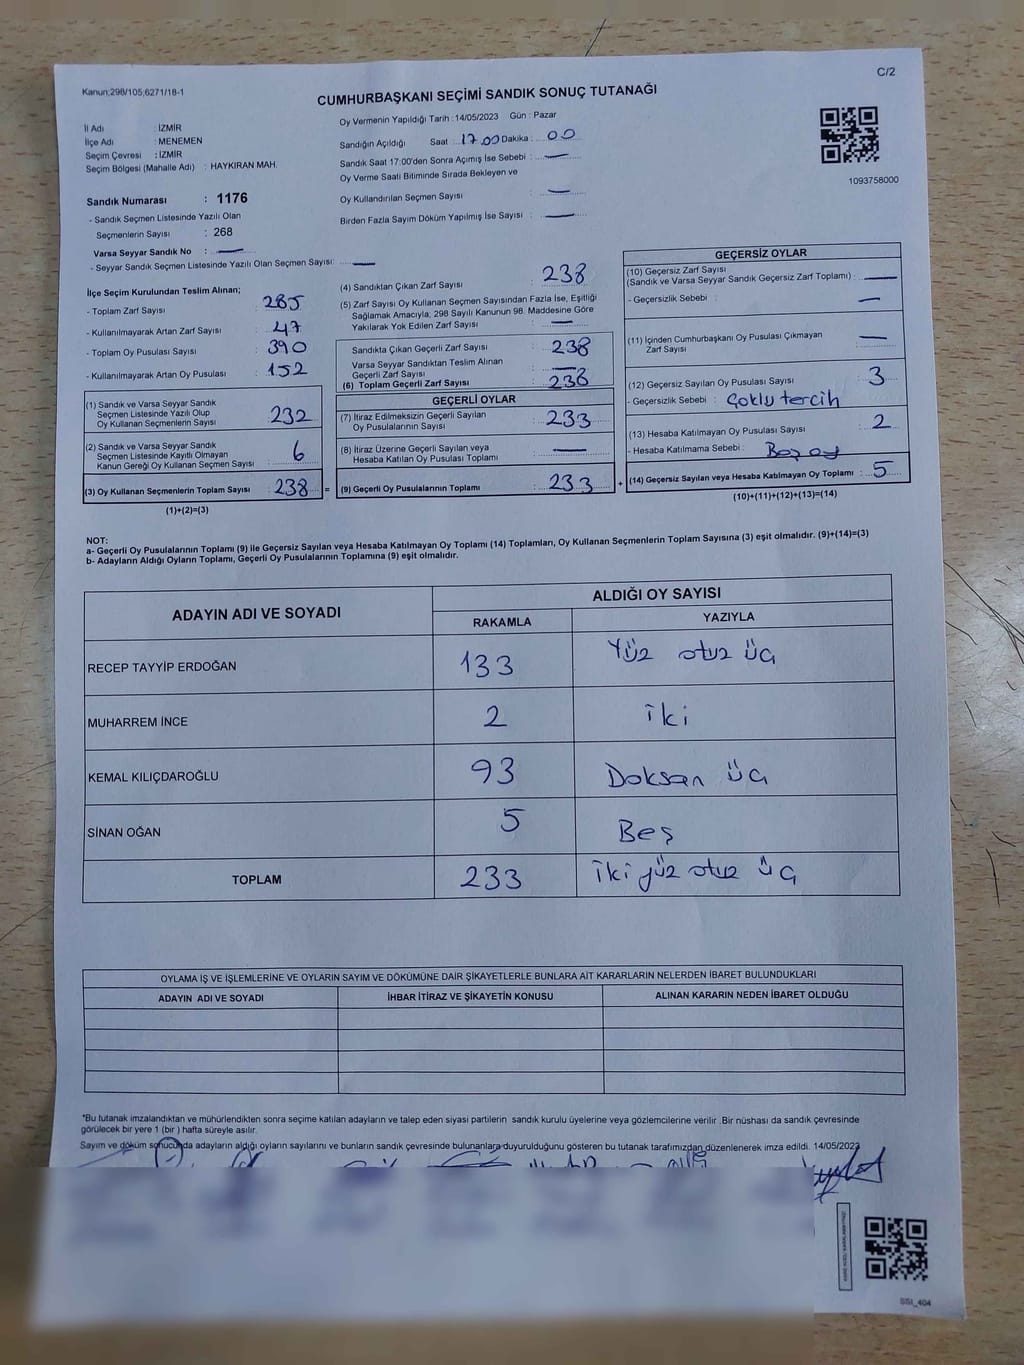 Kanun:298/105,6271/18-1
C/2
CUMHURBAŞKANI SEÇİMİ SANDIK SONUÇ TUTANAĞI
İl Adı : İZMİR
İlçe Adı : MENEMEN
Seçim Çevresi : İZMİR
Seçim Bölgesi (Mahalle Adı) : HAYKIRAN MAH.
Sandık Numarası : 1176
- Sandık Seçmen Listesinde Yazılı Olan
Seçmenlerin Sayısı : 268
Varsa Seyyar Sandık No : —
- Seyyar Sandık Seçmen Listesinde Yazılı Olan Seçmen Sayısı: —
Oy Vermenin Yapıldığı Tarih : 14/05/2023 Gün : Pazar
Sandığın Açıldığı Saat : 17.00 Dakika : 00
Sandık Saat 17:00'den Sonra Açımış İse Sebebi : —
Oy Verme Saati Bitiminde Sırada Bekleyen ve
Oy Kullandırılan Seçmen Sayısı : —
Birden Fazla Sayım Döküm Yapılmış İse Sayısı : —
1093758000
İlçe Seçim Kurulundan Teslim Alınan;
- Toplam Zarf Sayısı : 285
- Kullanılmayarak Artan Zarf Sayısı : 47
- Toplam Oy Pusulası Sayısı : 390
- Kullanılmayarak Artan Oy Pusulası : 152
(1) Sandık ve Varsa Seyyar Sandık
Seçmen Listesinde Yazılı Olup
Oy Kullanan Seçmenlerin Sayısı : 232
(2) Sandık ve Varsa Seyyar Sandık
Seçmen Listesinde Kayıtlı Olmayan
Kanun Gereği Oy Kullanan Seçmen Sayısı : 6
(3) Oy Kullanan Seçmenlerin Toplam Sayısı : 238 =
(1)+(2)=(3)
(4) Sandıktan Çıkan Zarf Sayısı : 238
(5) Zarf Sayısı Oy Kullanan Seçmen Sayısından Fazla İse, Eşitliği
Sağlamak Amacıyla, 298 Sayılı Kanunun 98. Maddesine Göre
Yakılarak Yok Edilen Zarf Sayısı : —
Sandıkta Çıkan Geçerli Zarf Sayısı : 238
Varsa Seyyar Sandıktan Teslim Alınan
Geçerli Zarf Sayısı : —
(6) Toplam Geçerli Zarf Sayısı : 238
GEÇERLİ OYLAR
(7) İtiraz Edilmeksizin Geçerli Sayılan
Oy Pusulalarının Sayısı : 233
(8) İtiraz Üzerine Geçerli Sayılan veya
Hesaba Katılan Oy Pusulası Toplamı : —
(9) Geçerli Oy Pusulalarının Toplamı : 233 +
GEÇERSİZ OYLAR
(10) Geçersiz Zarf Sayısı
(Sandık ve Varsa Seyyar Sandık Geçersiz Zarf Toplamı) : —
- Geçersizlik Sebebi : —
(11) İçinden Cumhurbaşkanı Oy Pusulası Çıkmayan
Zarf Sayısı : —
(12) Geçersiz Sayılan Oy Pusulası Sayısı : 3
- Geçersizlik Sebebi : Çoklu tercih
(13) Hesaba Katılmayan Oy Pusulası Sayısı : 2
- Hesaba Katılmama Sebebi : Boş oy
(14) Geçersiz Sayılan veya Hesaba Katılmayan Oy Toplamı : 5
(10)+(11)+(12)+(13)=(14)
NOT:
a- Geçerli Oy Pusulalarının Toplamı (9) ile Geçersiz Sayılan veya Hesaba Katılmayan Oy Toplamı (14) Toplamları, Oy Kullanan Seçmenlerin Toplam Sayısına (3) eşit olmalıdır. (9)+(14)=(3)
b- Adayların Aldığı Oyların Toplamı, Geçerli Oy Pusulalarının Toplamına (9) eşit olmalıdır.
ADAYIN ADI VE SOYADI
ALDIĞI OY SAYISI
RAKAMLA YAZIYLA
RECEP TAYYİP ERDOĞAN 133 Yüz otuz üç
MUHARREM İNCE 2 İki
KEMAL KILIÇDAROĞLU 93 Doksan üç
SİNAN OĞAN 5 Beş
TOPLAM 233 İki yüz otuz üç
OYLAMA İŞ VE İŞLEMLERİNE VE OYLARIN SAYIM VE DÖKÜMÜNE DAİR ŞİKAYETLERLE BUNLARA AİT KARARLARIN NELERDEN İBARET BULUNDUKLARI
ADAYIN ADI VE SOYADI İHBAR İTİRAZ VE ŞİKAYETİN KONUSU ALINAN KARARIN NEDEN İBARET OLDUĞU
*Bu tutanak imzalandıktan ve mühürlendikten sonra seçime katılan adayların ve talep eden siyasi partilerin sandık kurulu üyelerine veya gözlemcilerine verilir. Bir nüshası da sandık çevresinde
görülecek bir yere 1 (bir) hafta süreyle asılır.
Sayım ve döküm sonucunda adayların aldığı oyların sayılarını ve bunların sandık çevresinde bulunanlara duyurulduğunu gösteren bu tutanak tarafımızdan düzenlenerek imza edildi. 14/05/2023
SSI_404